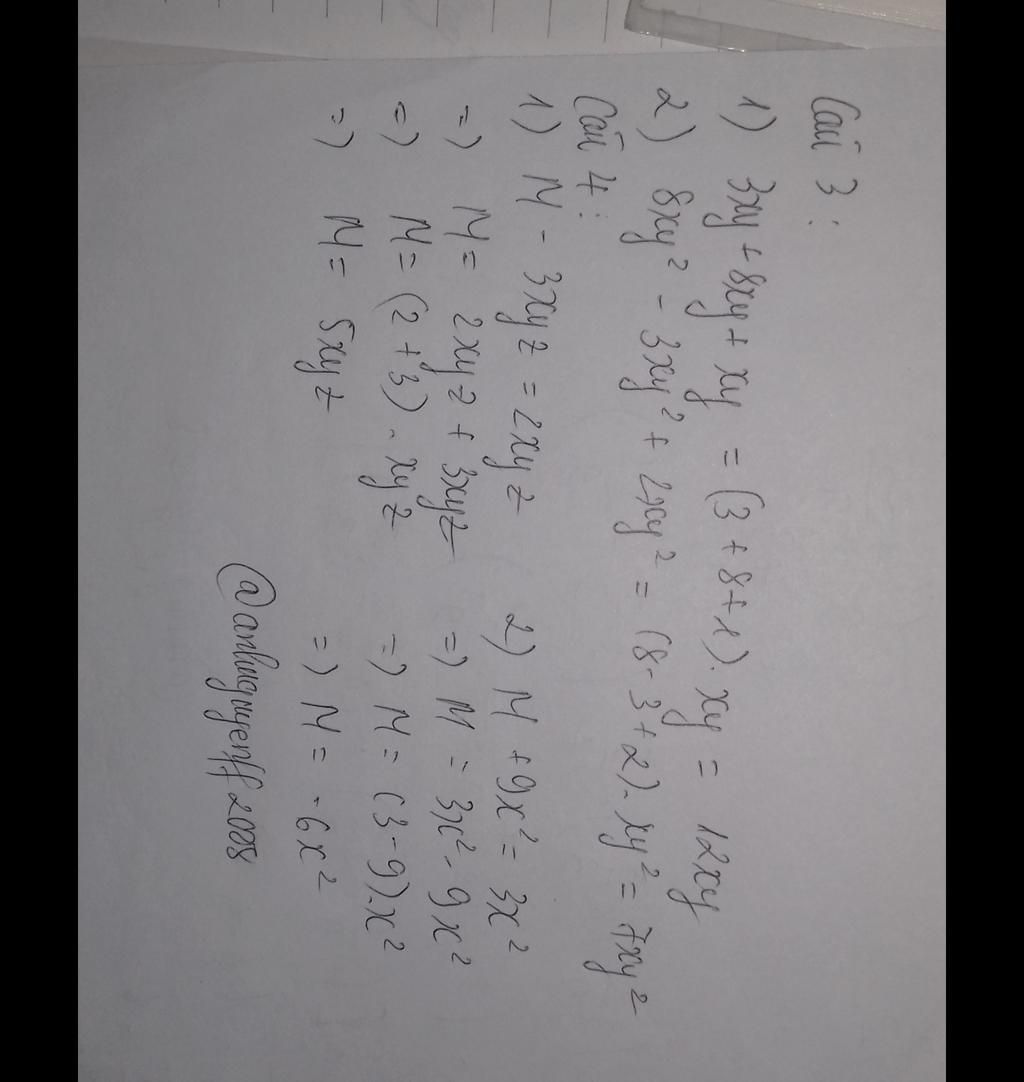 Câu 3 :
1) 3xy + 8xy + xy = (3 + 8 + 1). xy = 12xy
2) 8xy² - 3xy² + 2xy² = (8 - 3 + 2). xy² = 7xy²
Câu 4 :
1) M - 3xyz = 2xyz
=) M = 2xyz + 3xyz
=) M = (2 + 3). xyz
=) M = 5xyz
2) M + 9x² = 3x²
=) M = 3x² - 9x²
=) M = (3 - 9). x²
=) M = -6x²
@anhnguyenff2008